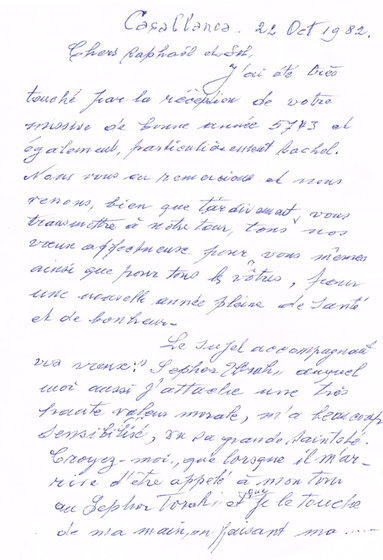 Casablanca. 22 Oct 1982.
Chers Raphaël et
J'ai été très
touché par la réception de votre
missive de bonne année 5743 et
également, particulièrement Rachel.
Nous vous en remercions et nous
venons, bien que tardivement vous
transmettre à notre tour, tous nos
vœux affectueux pour vous mêmes
ainsi que pour tous les vôtres, pour
une nouvelle année pleine de santé
et de bonheur.
Le sujet accompagnant
vos vœux: "Sepher Torah", auquel
moi aussi j'attache une très
haute valeur morale, m'a beaucoup
sensibilisé, vu sa grande sainteté.
Croyez-moi, que lorsque il m'ar-
rive d'être appelé à mon tour
au Sepher Torah, et que je le touche
de ma main, en faisant ma .....